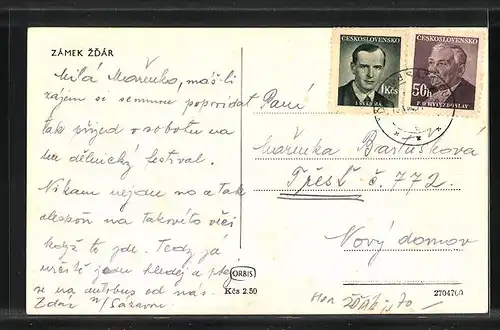 ZÁMEK ŽĎÁR
Milá Mařenko, máš-li
zájem si semnou popovídat
tak přijed v sobotu na
dělnický festival.
Nikam nejdu no a tak
alespoň na takovéto věci
když to jde. Tedy já
určitě jedu hledej a ptej
se na autobus od nás.
Zdar n/Sázavou
ČESKOSLOVENSKO
1Kčs
ČESKOSLOVENSKO
50h
P. O. HVIEZDOSLAV
Paní
Mařenka Bartušková
Třešť č. 772.
Nový domov
ORBIS
Kčs 2.50
2704760